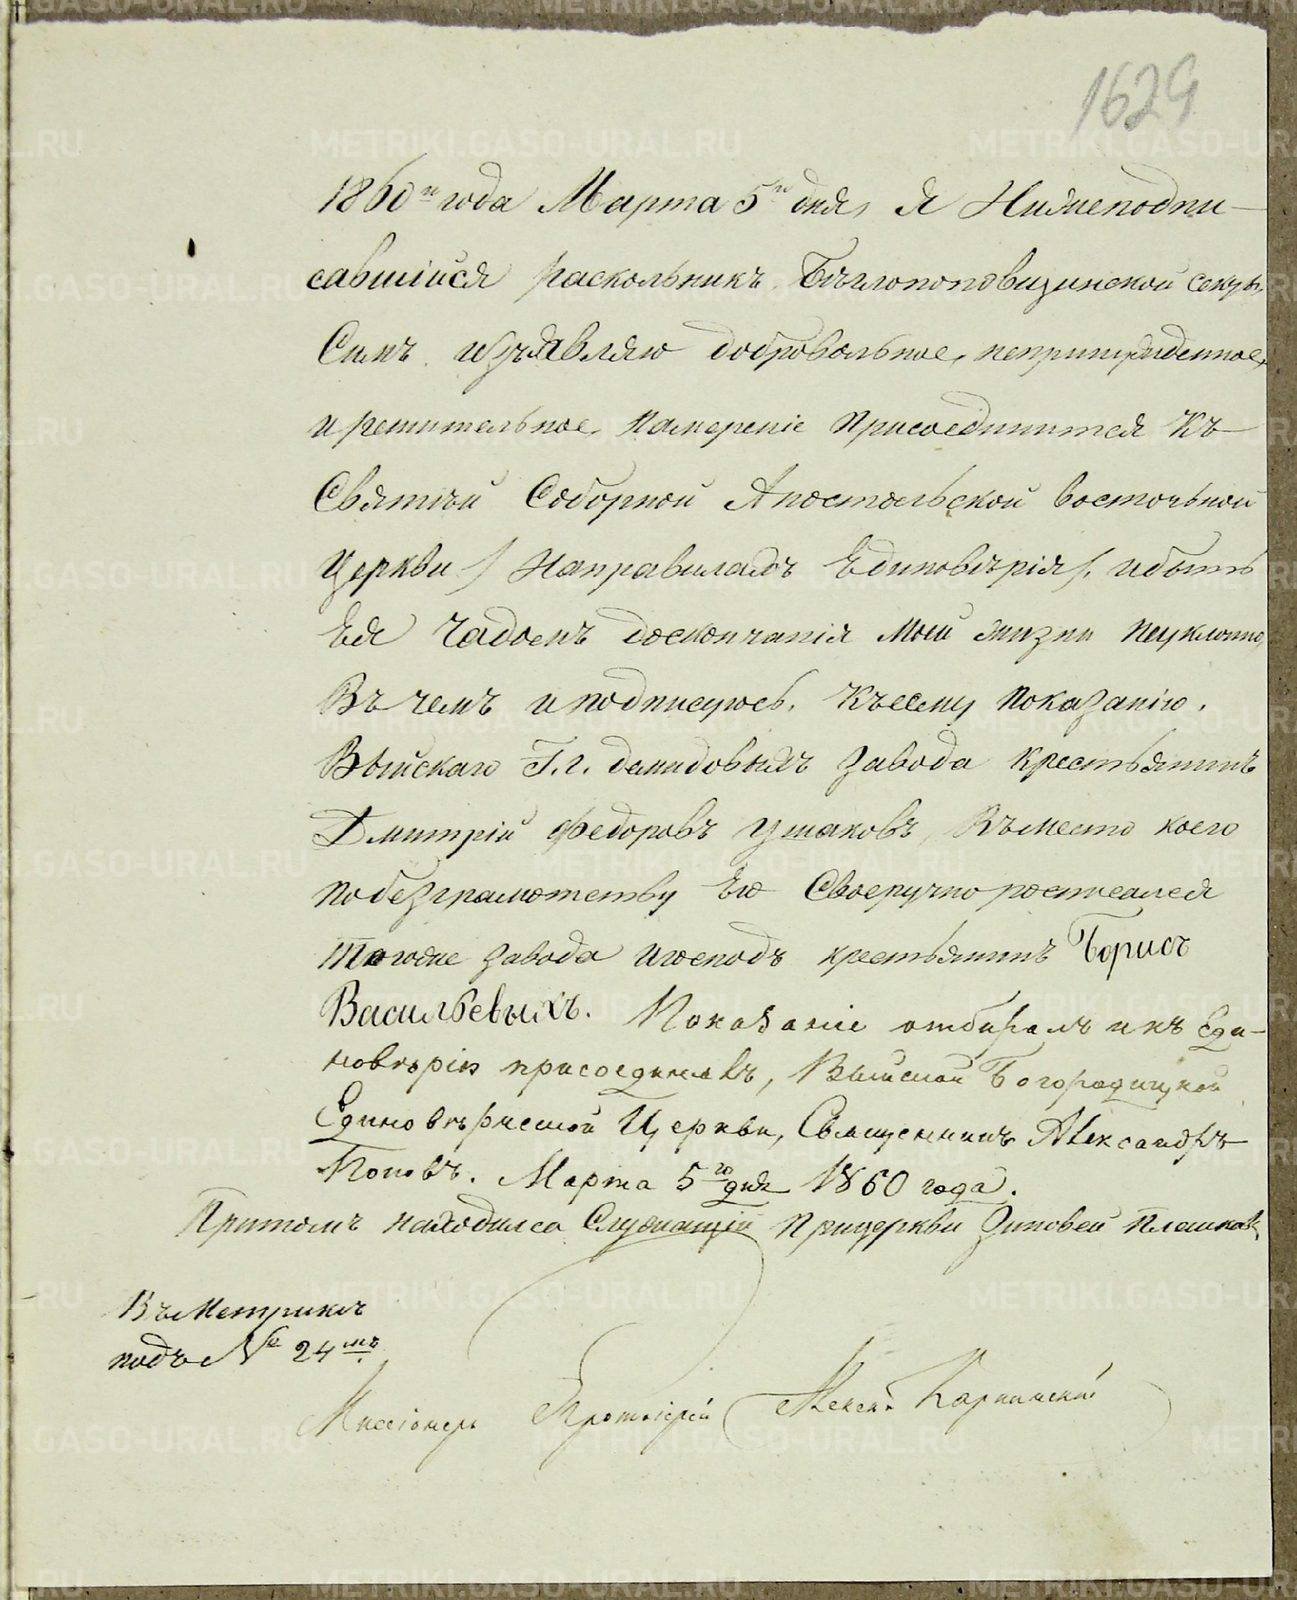 1629
1860го года Марта 5го дня, Я Нижеподпи-
савшійся раскольникъ Бѣглопоповщинской секты,
Симъ изъявляю добровольное, непринужденное,
и решительное, намереніе присоединится Къ
Святѣй Соборной Апостольской восточьной
Церкви /Направилахъ Единовѣрія/. ибыть
Ея Чадомъ доскончанія моей жизни неуклонно,
Въ чемъ и подписуюсь. Къ сему показанію.
Выйскаго Г.г. демидовыхъ завода крестьянинъ
Дмитрій Федоровъ Ушаковъ, Въместо коего
побезграмотству Его Своеручно росписался
тогоже завода игосподъ крестьянинъ Борисъ
Васильевыхъ. Показаніе отбиралъ и къ Еди-
новѣрію присоединилъ, Выйской Богородицкой
Единовѣрческой Церкви, Священникъ Александръ
Поповъ. Марта 5го дня 1860 года.
Притомъ находился Служащій Прицеркви Зиновей Плешковъ
Въ Метрикѣ
подъ № 24мъ.
Миссіонеръ Протоіерей Алексѣй Карпинскій